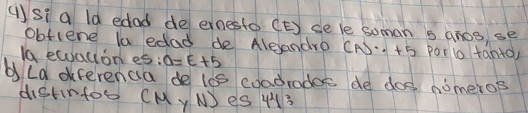 4) si a la edad de ernesto (E) se le suman 5 años, se
obtiene la edad de Alejandro (A)... +5 Por lo tanto,
la ecuación es: a=E+5
b) La diferencia de los cuadrados de dos números
distintos (M y N) es 443